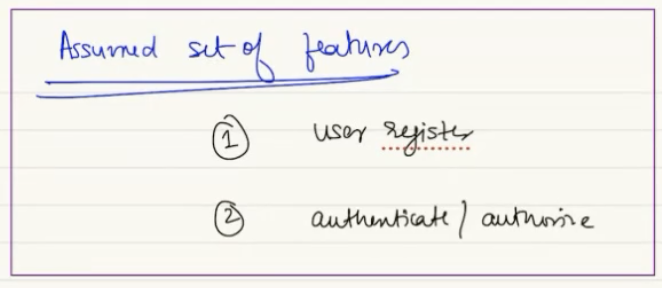 Assumed set of features
1 user register
2 authenticate / authorize